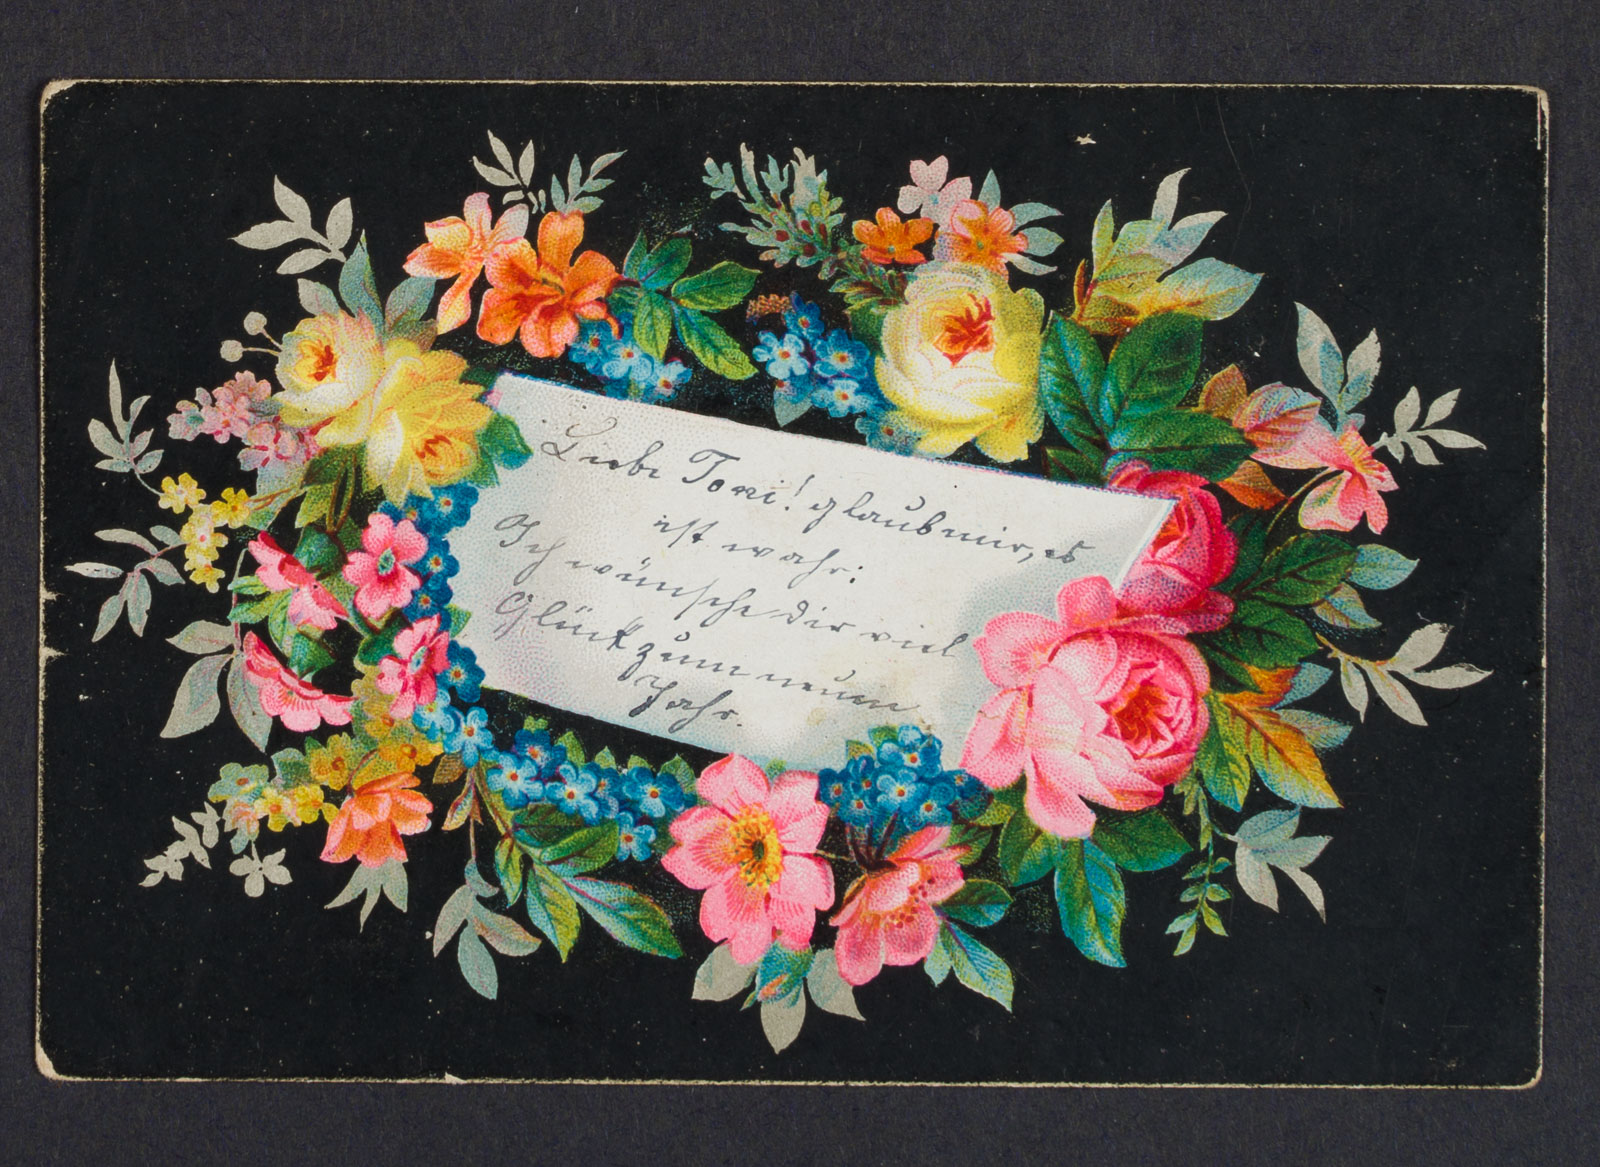 Liebe Toni! glaub mir, es
ist wahr:
Ich wünsche dir viel
Glück zum neuen
Jahr.